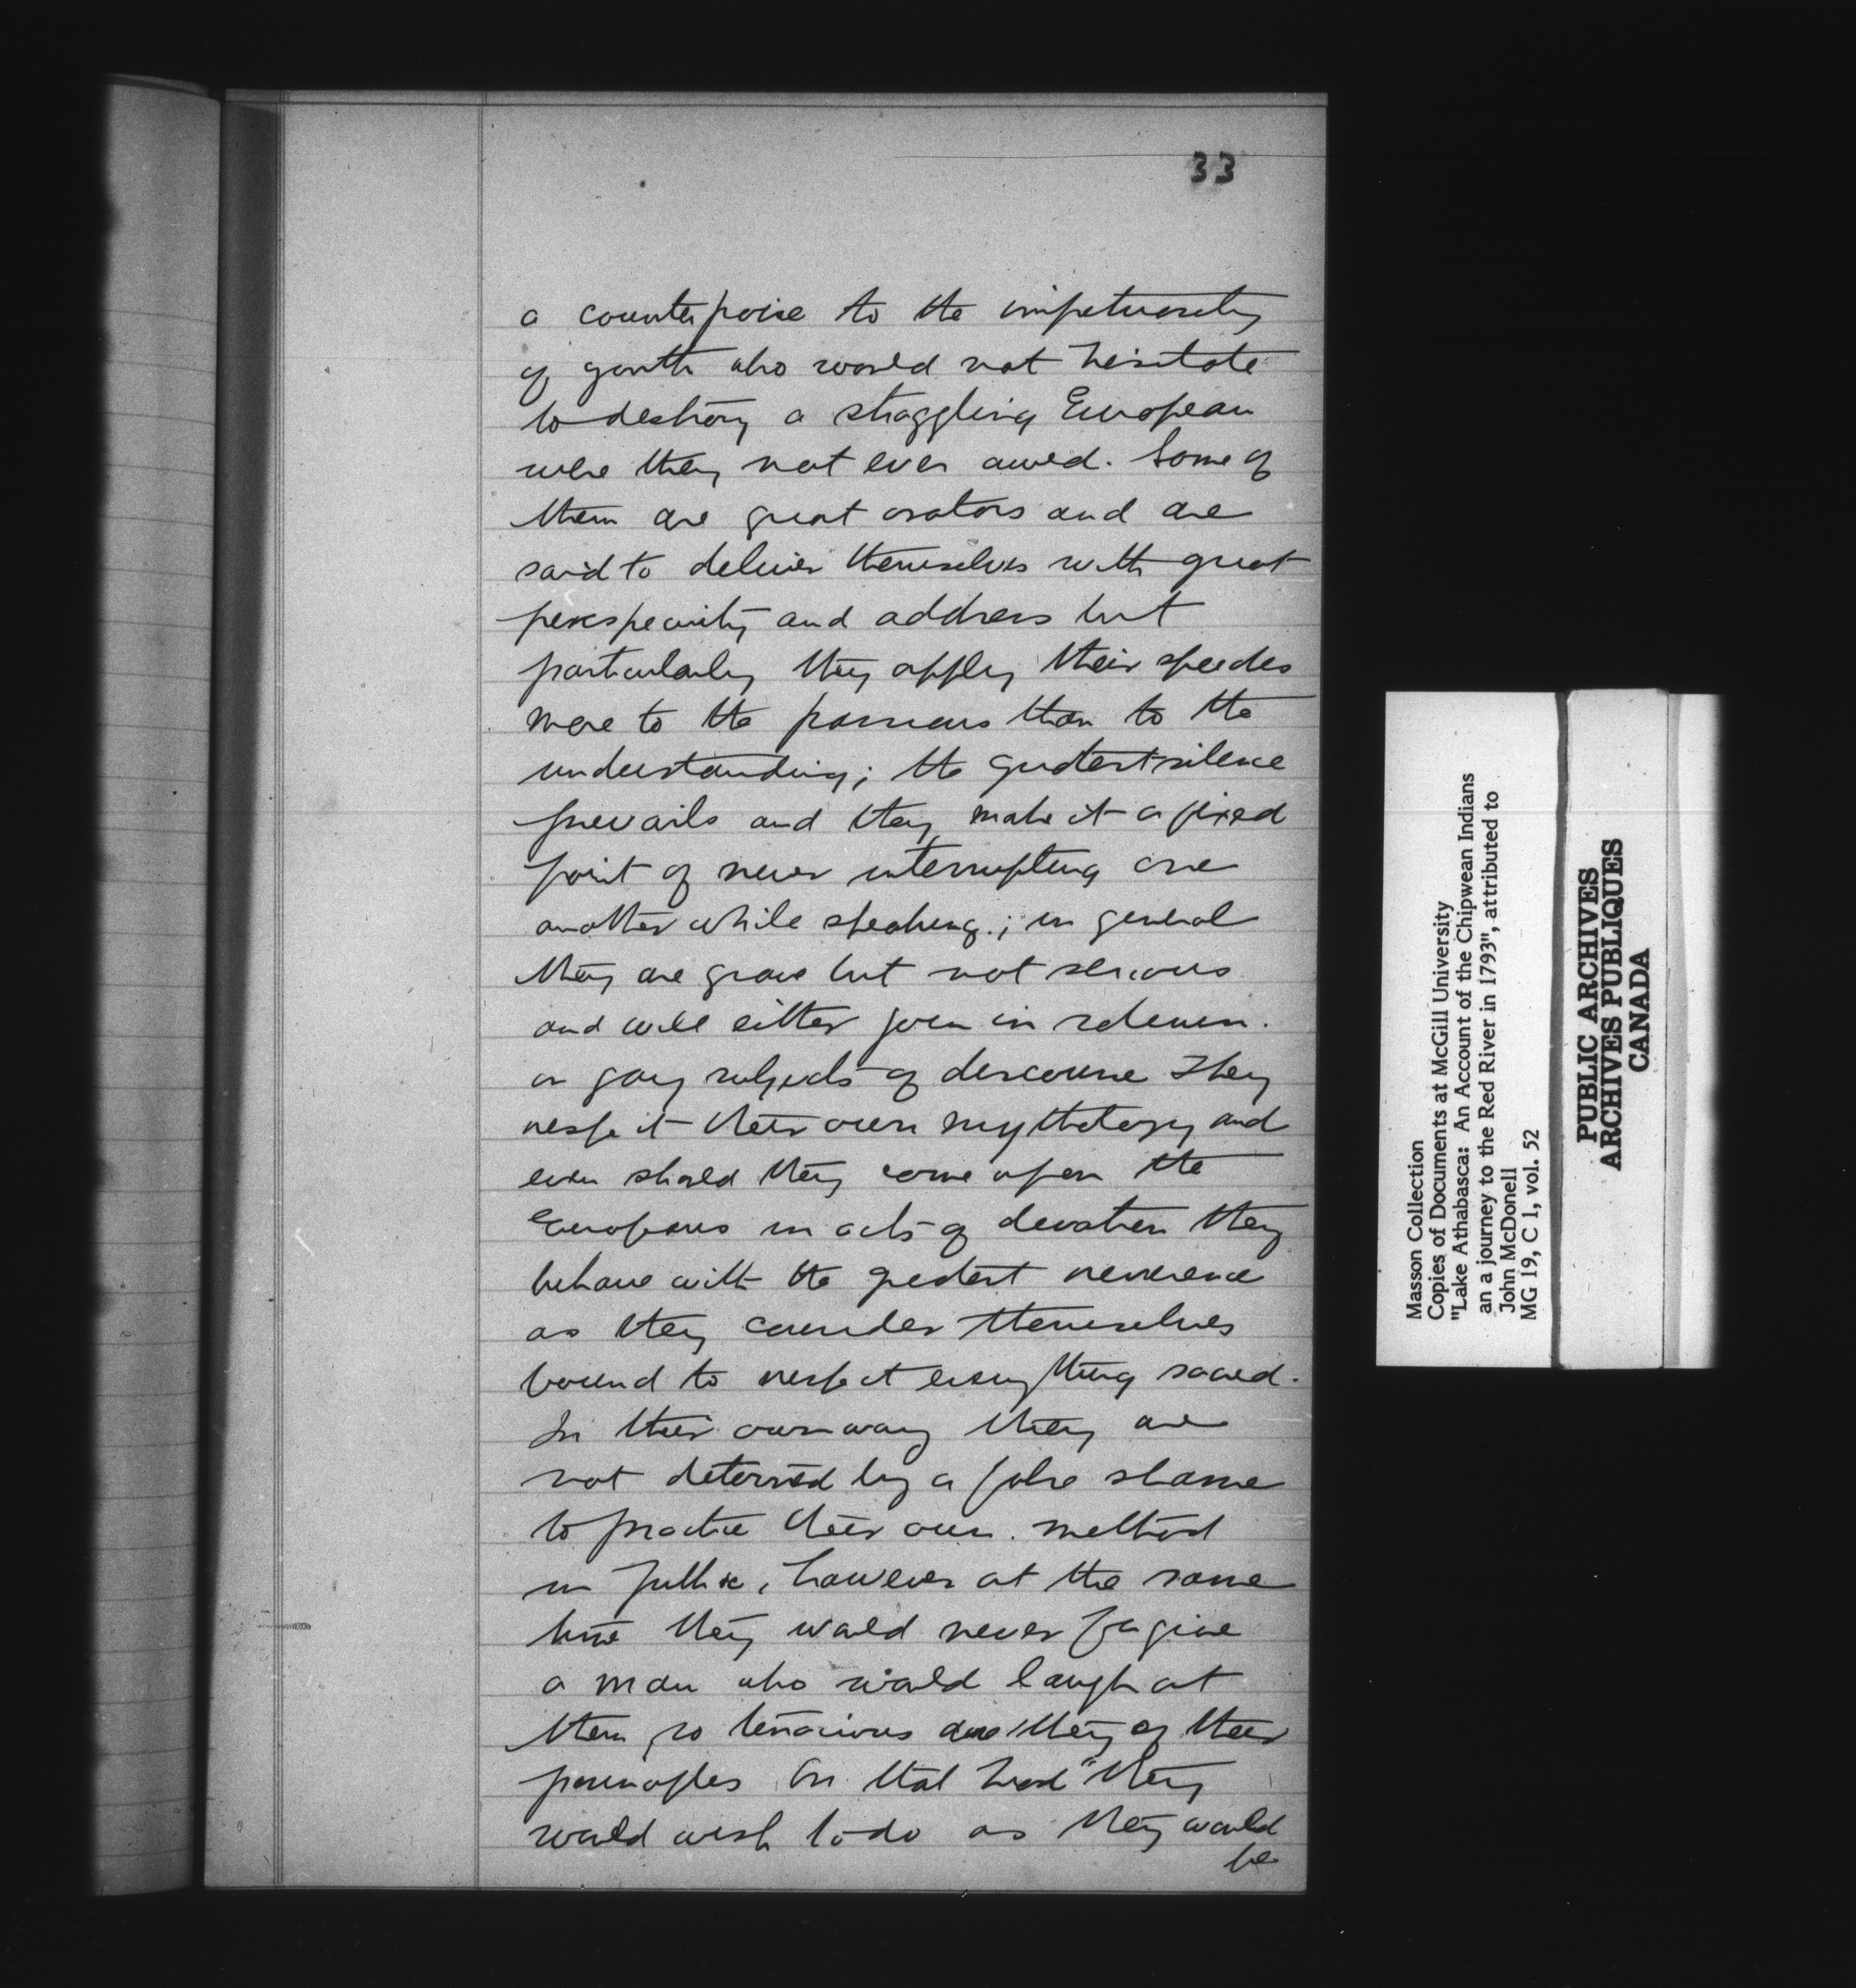 33
a counterpoise to the impetuosity
of youth who would not hesitate
to destroy a straggling European
were they not over awed. Some of
them are great orators and are
said to deliver themselves with great
perspecuity and address but
particularly they apply their speeches
more to the passions than to the
understanding; the greatest silence
prevails and they make it a fixed
point of never interrupting one
another while speaking; in general
they are grave but not serious
and will either join in solemn.
or gay subjects of discourse They
respect their own mythology and
even should they come upon the
Europeans in acts of devotion they
behave with the greatest reverence
as they consider themselves
bound to respect everything sacred.
In their own way they are
not deterred by a false shame
to practice their own. method
in public, however at the same
time they would never forgive
a man who would laugh at
them, so tenacious are they of their
principles on that head "they
would wish to do as they would
be
Masson Collection
Copies of Documents at McGill University
"Lake Athabasca: An Account of the Chipwean Indians
an a journey to the Red River in 1793", attributed to
John McDonell
MG 19, C 1, vol. 52
PUBLIC ARCHIVES
ARCHIVES PUBLIQUES
CANADA